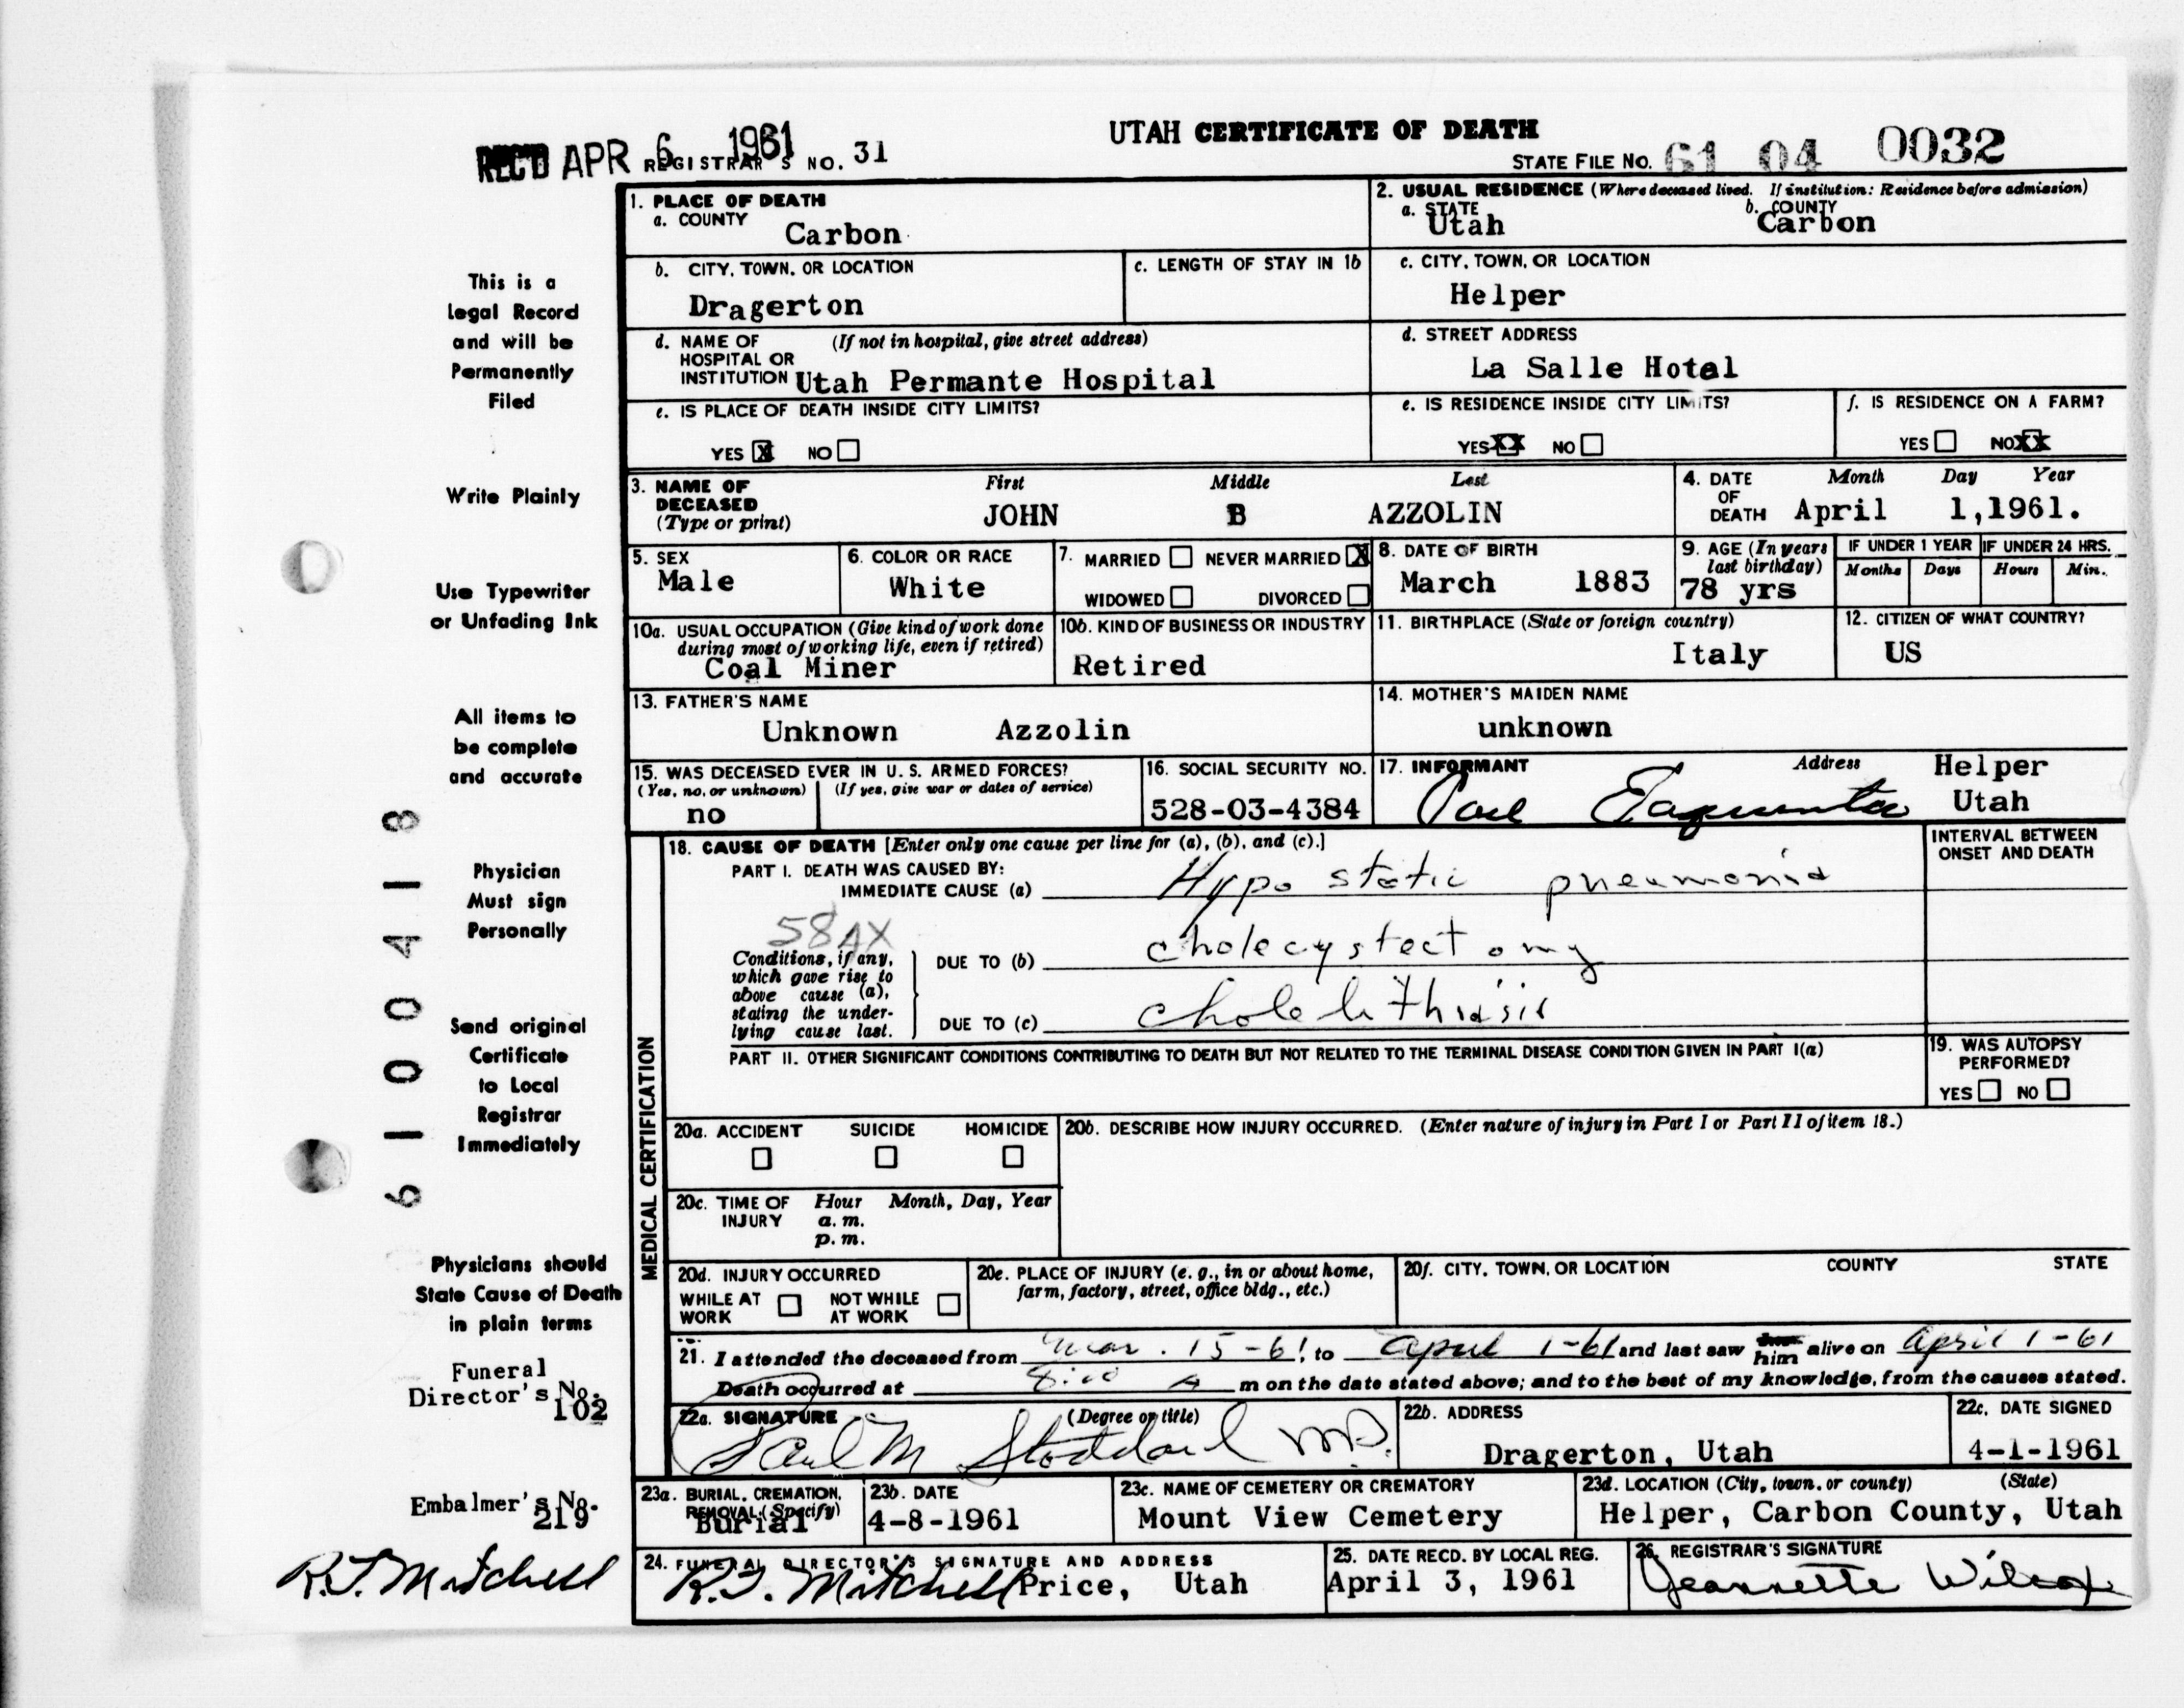 UTAH CERTIFICATE OF DEATH
REC'D APR 6 1961 REGISTRAR'S NO. 31
STATE FILE NO. 61 04 0032
This is a
Legal Record
and will be
Permanently
Filed
Write Plainly
Use Typewriter
or Unfading Ink
All items to
be complete
and accurate
Physician
Must sign
Personally
Send original
Certificate
to Local
Registrar
Immediately
Physicians should
State Cause of Death
in plain terms
Funeral
Director's No.
102
Embalmer's No.
219
R.J. Mitchell
6 1 0 0 4 1 8
1. PLACE OF DEATH
a. COUNTY
Carbon
2. USUAL RESIDENCE (Where deceased lived. If institution: Residence before admission)
a. STATE b. COUNTY
Utah Carbon
b. CITY, TOWN, OR LOCATION
Dragerton
c. LENGTH OF STAY IN 1b
c. CITY, TOWN, OR LOCATION
Helper
d. NAME OF (If not in hospital, give street address)
HOSPITAL OR
INSTITUTION Utah Permante Hospital
d. STREET ADDRESS
La Salle Hotel
e. IS PLACE OF DEATH INSIDE CITY LIMITS?
YES X NO
e. IS RESIDENCE INSIDE CITY LIMITS?
YES XX NO
f. IS RESIDENCE ON A FARM?
YES NO XX
3. NAME OF First Middle Last
DECEASED
(Type or print) JOHN B AZZOLIN
4. DATE Month Day Year
OF
DEATH April 1,1961.
5. SEX
Male
6. COLOR OR RACE
White
7. MARRIED NEVER MARRIED X
WIDOWED DIVORCED
8. DATE OF BIRTH
March 1883
9. AGE (In years
last birthday)
78 yrs
IF UNDER 1 YEAR IF UNDER 24 HRS.
Months Days Hours Min.
10a. USUAL OCCUPATION (Give kind of work done
during most of working life, even if retired)
Coal Miner
10b. KIND OF BUSINESS OR INDUSTRY
Retired
11. BIRTHPLACE (State or foreign country)
Italy
12. CITIZEN OF WHAT COUNTRY?
US
13. FATHER'S NAME
Unknown Azzolin
14. MOTHER'S MAIDEN NAME
unknown
15. WAS DECEASED EVER IN U. S. ARMED FORCES?
(Yes, no, or unknown) (If yes, give war or dates of service)
no
16. SOCIAL SECURITY NO.
528-03-4384
17. INFORMANT Address
Helper
Utah
18. CAUSE OF DEATH [Enter only one cause per line for (a), (b), and (c).]
PART I. DEATH WAS CAUSED BY:
IMMEDIATE CAUSE (a) Hypo static pneumonia
INTERVAL BETWEEN
ONSET AND DEATH
Conditions, if any,
which gave rise to
above cause (a),
stating the under-
lying cause last.
DUE TO (b) cholecystectomy
DUE TO (c) cholelithiasis
PART II. OTHER SIGNIFICANT CONDITIONS CONTRIBUTING TO DEATH BUT NOT RELATED TO THE TERMINAL DISEASE CONDITION GIVEN IN PART I(a)
19. WAS AUTOPSY
PERFORMED?
YES NO
MEDICAL CERTIFICATION
20a. ACCIDENT SUICIDE HOMICIDE
20b. DESCRIBE HOW INJURY OCCURRED. (Enter nature of injury in Part I or Part II of item 18.)
20c. TIME OF Hour Month, Day, Year
INJURY a. m.
p. m.
20d. INJURY OCCURRED
WHILE AT NOT WHILE
WORK AT WORK
20e. PLACE OF INJURY (e. g., in or about home,
farm, factory, street, office bldg., etc.)
20f. CITY, TOWN, OR LOCATION COUNTY STATE
21. I attended the deceased from Mar. 15-61 to April 1-61 and last saw him alive on April 1-61
Death occurred at 8:10 A m on the date stated above; and to the best of my knowledge, from the causes stated.
22a. SIGNATURE (Degree or title)
Paul M Stoddard MD.
22b. ADDRESS
Dragerton, Utah
22c. DATE SIGNED
4-1-1961
23a. BURIAL, CREMATION,
REMOVAL (Specify)
Burial
23b. DATE
4-8-1961
23c. NAME OF CEMETERY OR CREMATORY
Mount View Cemetery
23d. LOCATION (City, town, or county) (State)
Helper, Carbon County, Utah
24. FUNERAL DIRECTOR'S SIGNATURE AND ADDRESS
R.J. Mitchell Price, Utah
25. DATE RECD. BY LOCAL REG.
April 3, 1961
26. REGISTRAR'S SIGNATURE
Jeannette Wilcox